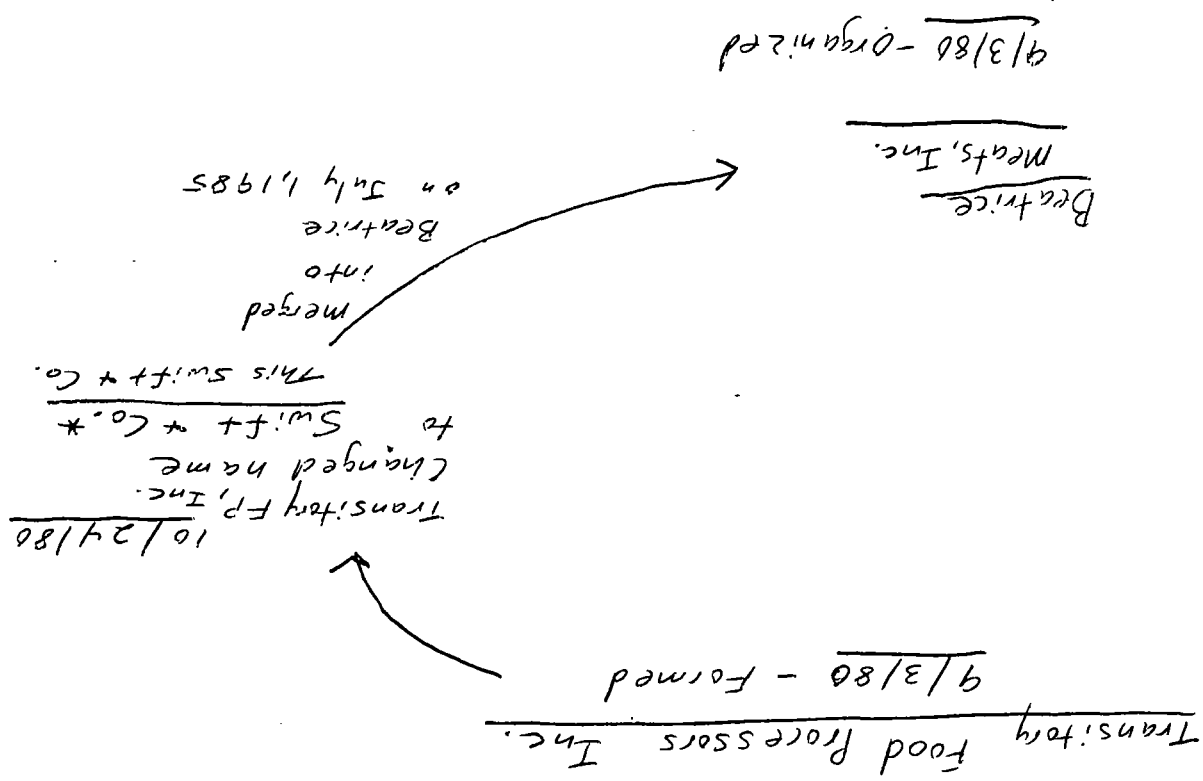 Transitory Food Processors Inc.
9/3/80 - Formed
10/24/80
Transitory FP, Inc.
Changed name
to Swift & Co.*
This Swift & Co.
merged
into
Beatrice
on July 1, 1985
Beatrice
Meats, Inc.
9/3/80 - Organized